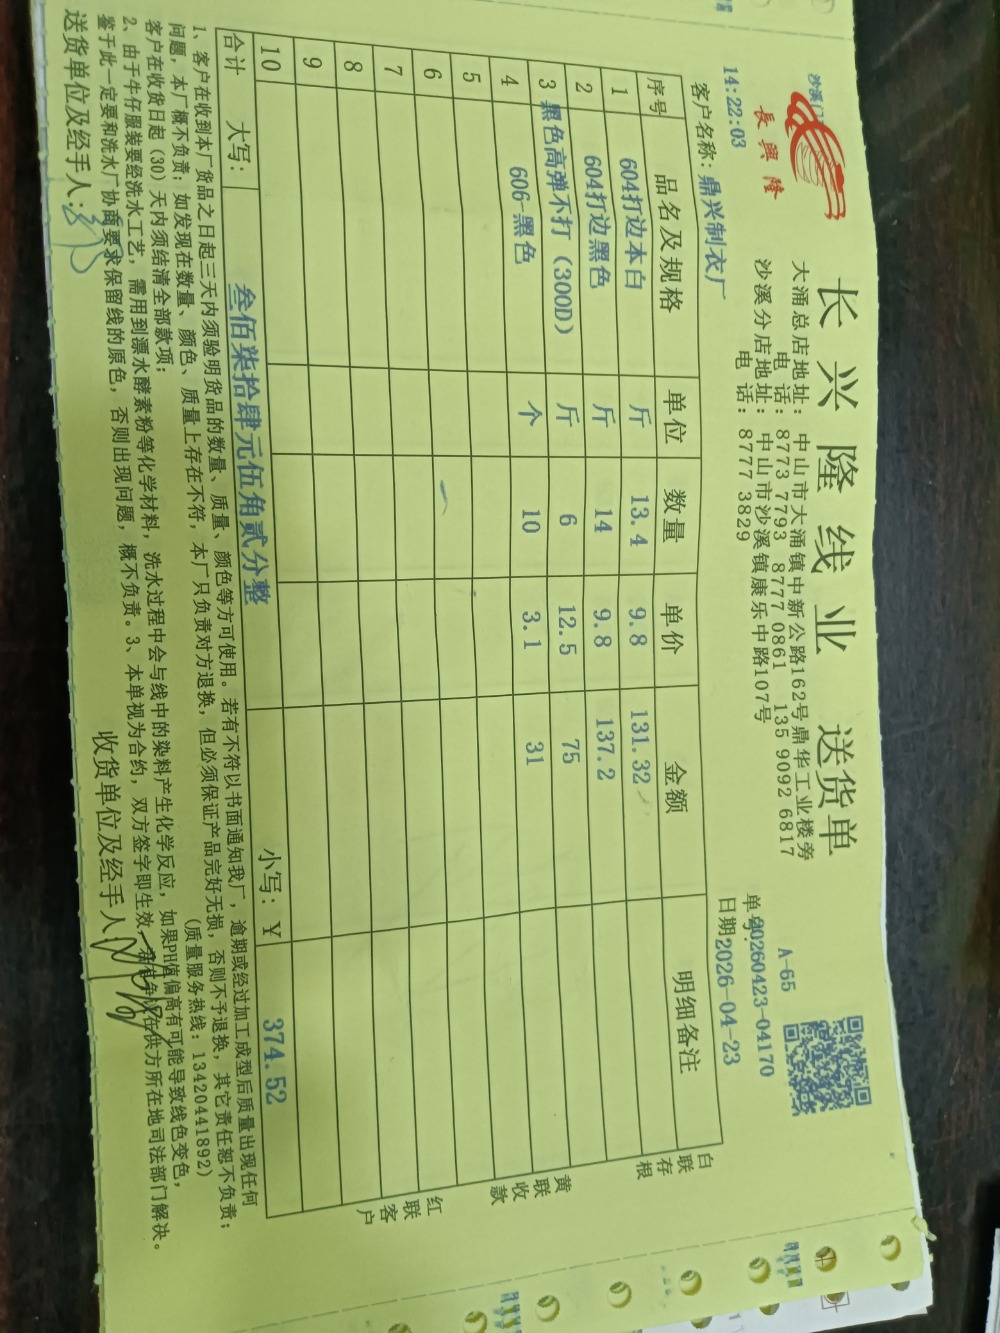 沙溪门
長興隆
长兴隆线业 送货单
大涌总店地址: 中山市大涌镇中新公路162号鼎华工业楼旁
电 话: 8773 7793 8777 0861 135 9092 6817
沙溪分店地址: 中山市沙溪镇康乐中路107号
电 话: 8777 3829
A-65
单号: 20260423-04170
14:22:03
日期 2026-04-23
客户名称: 鼎兴制衣厂
序号 品名及规格 单位 数量 单价 金额 明细备注
1 604打边本白 斤 13.4 9.8 131.32
2 604打边黑色 斤 14 9.8 137.2
3 黑色高弹不打（300D） 斤 6 12.5 75
4 606-黑色 个 10 3.1 31
5
6
7
8
9
10
合计 大写: 叁佰柒拾肆元伍角贰分整 小写: ¥ 374.52
白联存根
黄联收款
红联客户
1、客户在收到本厂货品之日起三天内须验明货品的数量、质量、颜色等方可使用。若有不符以书面通知我厂，逾期或经过加工成型后质量出现任何
问题，本厂概不负责；如发现在数量、颜色、质量上存在不符，本厂只负责对方退换，但必须保证产品完好无损，否则不予退换，其它责任恕不负责；
客户在收货日起（30）天内须结清全部款项； （质量服务热线: 13420441892）
2、由于牛仔服装要经洗水工艺，需用到漂水酵素粉等化学材料，洗水过程中会与线中的染料产生化学反应，如果PH值偏高有可能导致线色变色，
鉴于此一定要和洗水厂协商要求保留线的原色，否则出现问题，概不负责。3、本单视为合约，双方签字即生效，在供方所在地司法部门解决。
送货单位及经手人: 收货单位及经手人